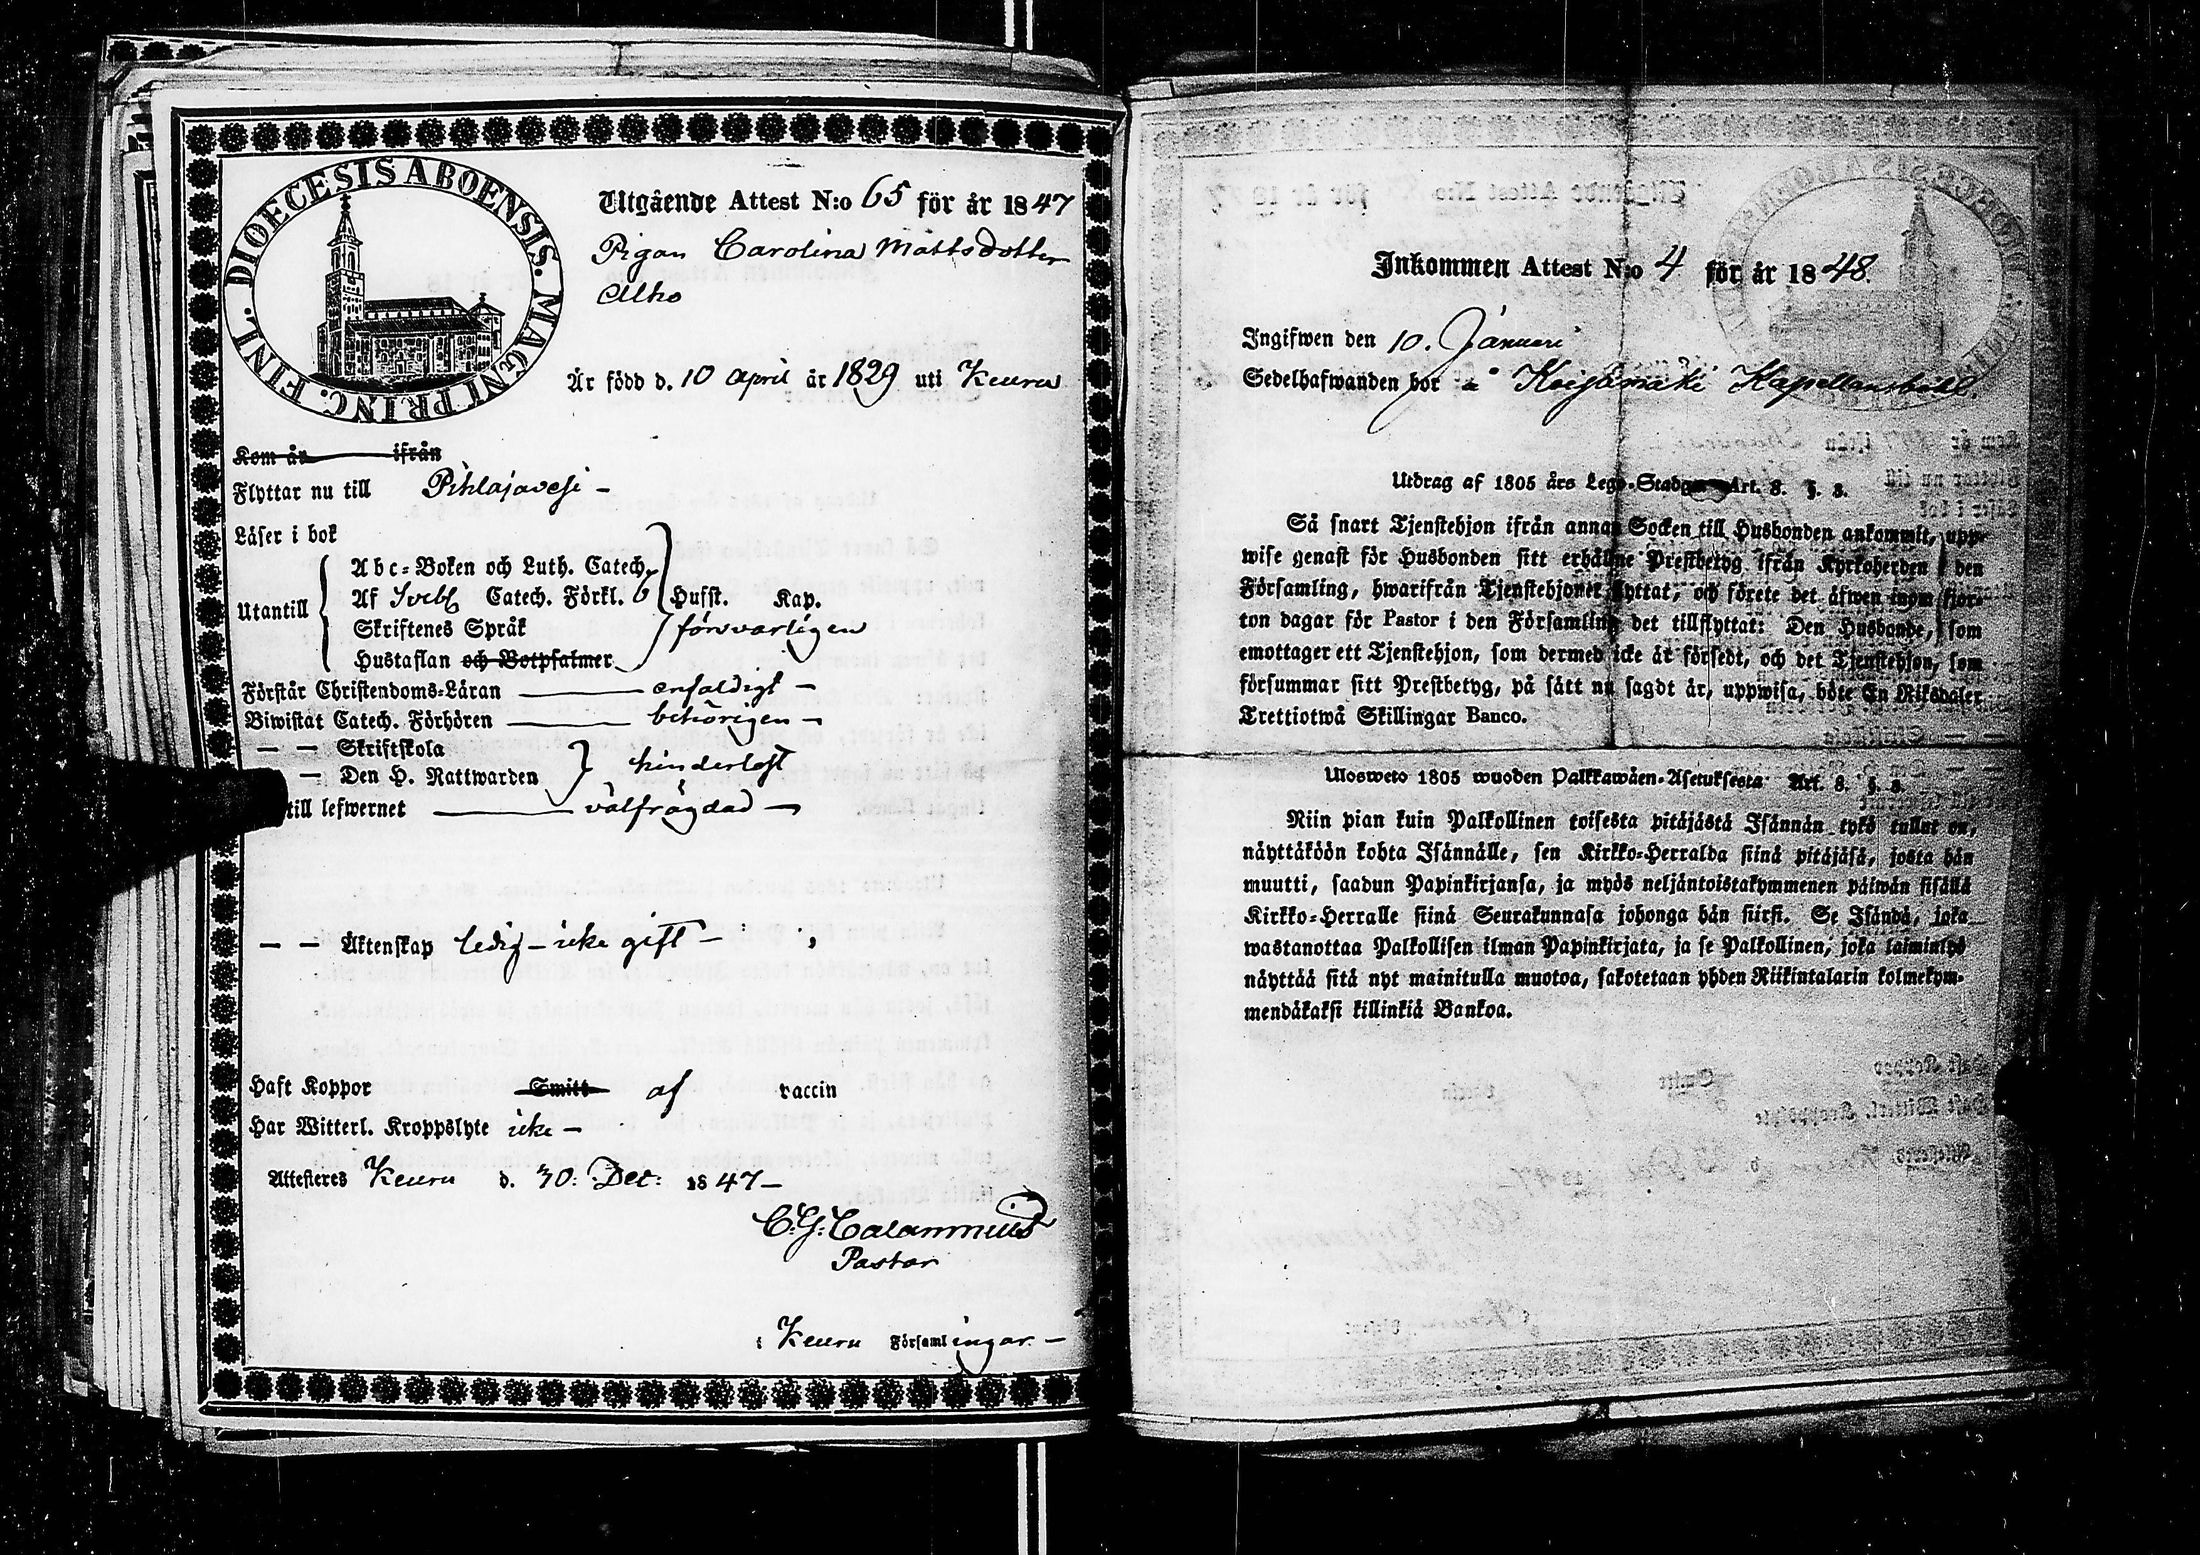 DIOECESIS ABOENSIS. MAGNI PRINC. FINL.
Utgående Attest N:o 65 för år 1847
Pigan Carolina Mattsdotter
Alho
Är född d. 10 April år 1829 uti Keuru
Kom år ifrån
Flyttar nu till Pihlajavesi –
Läser i bok
Utantill
Abc-Boken och Luth. Catech.
Af Svebl Catech. Förkl. Hufst. Kap.
Skriftenes Språk försvarligen
Hustaflan och Botpsalmer
Förstår Christendoms-Läran enfaldigt –
Biwistat Catech. Förhören behörigen –
— — Skriftskola
— Den H. Nattwarden hinderlöst
till lefwernet välfrägdad –
— — Äktenskap ledig – icke gift –
Haft Koppor Smitt af vaccin
Har Witterl. Kroppslyte icke –
Attesteres Keuru d. 30: Dec: 1847 –
C. G. Calamnius
Pastor
i Keuru Församlingar. –
Inkommen Attest N:o 4 för år 1848.
Ingifwen den 10. Januari
Sedelhafwanden bor å Kapellansbohl.
Utdrag af 1805 års Lego-Stadga Art. 8. §. 8.
Så snart Tjenstehjon ifrån annan Socken till Husbonden ankommit, upp-
wise genast för Husbonden sitt erhållne Prestbetyg ifrån Kyrkoherden i den
Församling, hwarifrån Tjenstehjonet flyttat, och förete det äfwen inom fjor-
ton dagar för Pastor i den Församling det tillflyttat: Den Husbonde, som
emottager ett Tjenstehjon, som dermed icke är försedt, och det Tjenstehjon, som
försummar sitt Prestbetyg, på sätt nu sagdt är, uppwisa, böte En Riksdaler
Trettiotwå Skillingar Banco.
Ulosweto 1805 wuoden Palkkawäen-Asetuksesta Art. 8. §. 8.
Niin pian kuin Palkollinen toisesta pitäjästä Isännän tykö tullut on,
näyttäköön kohta Isännälle, sen Kirkko-Herralda siinä pitäjäsä, josta hän
muutti, saadun Papinkirjansa, ja myös neljäntoistakymmenen päiwän sisällä
Kirkko-Herralle siinä Seurakunnasa johonga hän siirsi. Se Isändä, joka
wastanottaa Palkollisen ilman Papinkirjata, ja se Palkollinen, joka laiminlyö
näyttää sitä nyt mainitulla muotoa, sakotetaan yhden Riikintalarin kolmekym-
mendäkaksi killinkiä Bankoa.